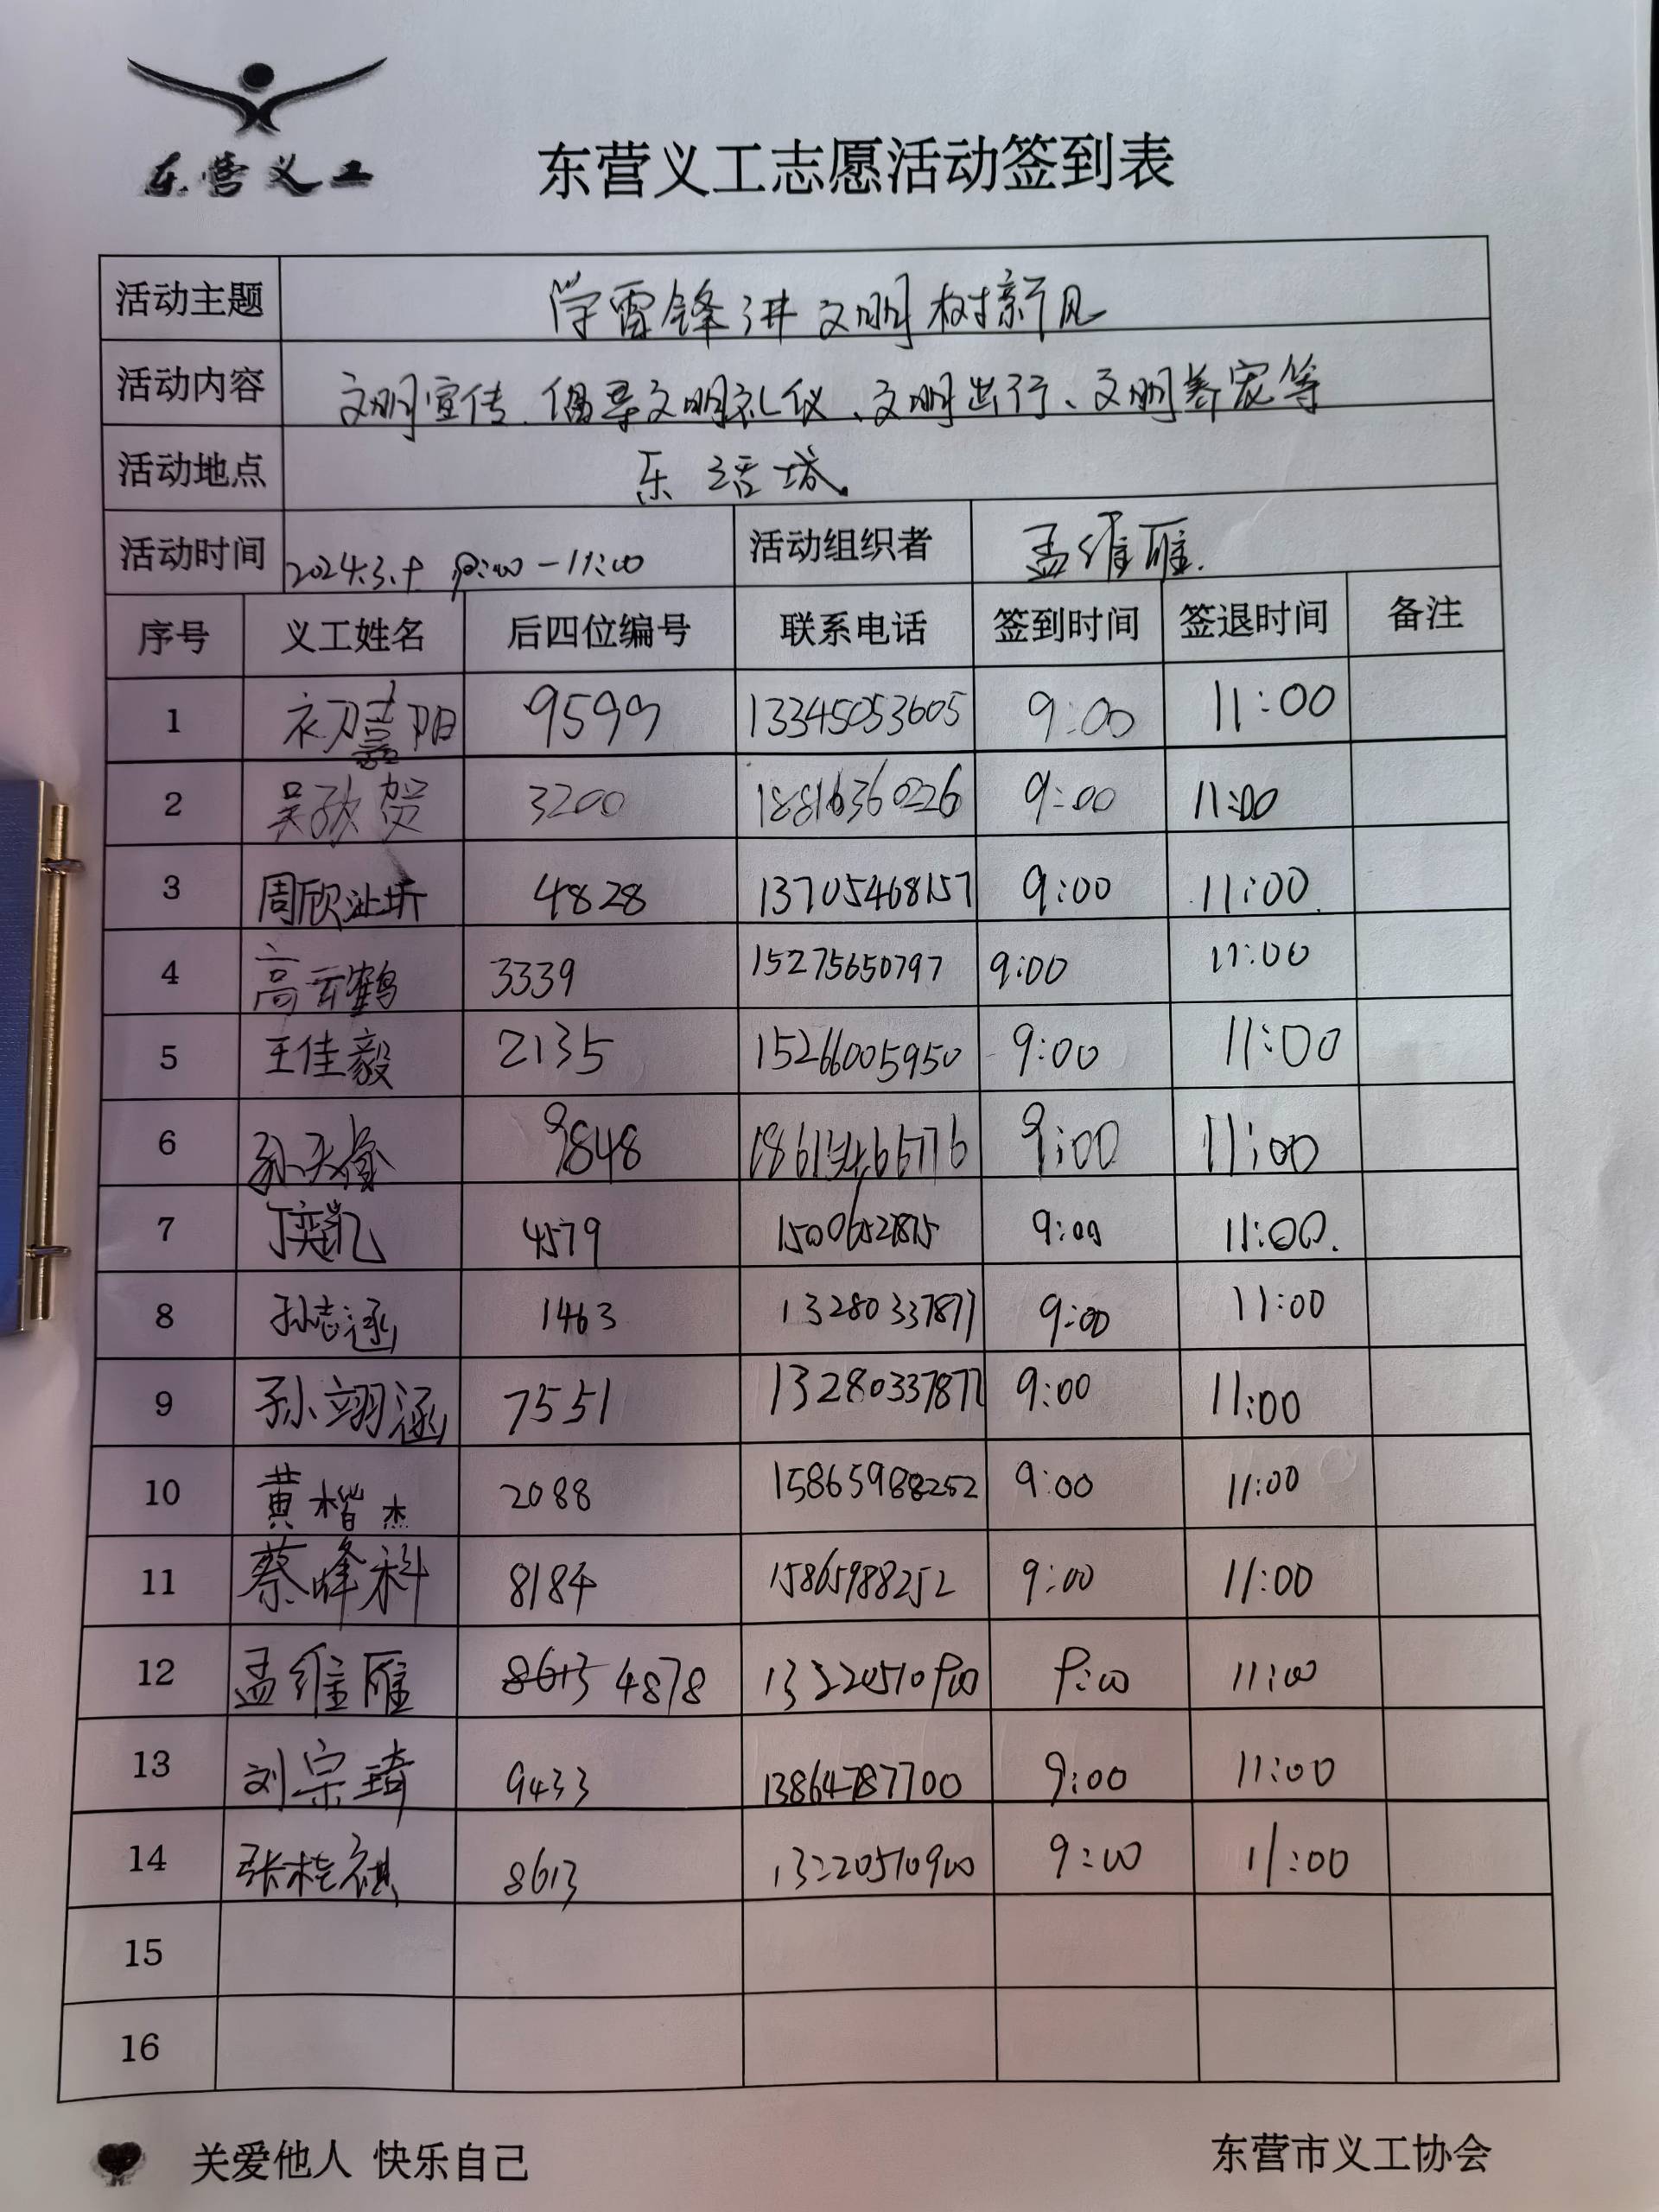 东营义工
东营义工志愿活动签到表
活动主题 学雷锋讲文明树新风
活动内容 文明宣传、倡导文明礼仪、文明出行、文明养宠等
活动地点 东活城
活动时间 2024.3.9 9:00-11:00 活动组织者 孟维雁
序号 义工姓名 后四位编号 联系电话 签到时间 签退时间 备注
1 初嘉阳 9599 13345053605 9:00 11:00
2 吴孜贺 3200 18816360226 9:00 11:00
3 周欣沚圻 4828 13705468157 9:00 11:00
4 高云鹤 3339 15275650797 9:00 11:00
5 王佳毅 2135 15266005950 9:00 11:00
6 9848 9:00 11:00
7 丁奕凯 4579 9:00 11:00
8 孙志涵 1463 13280337877 9:00 11:00
9 孙翊涵 7551 13280337877 9:00 11:00
10 黄楷杰 2088 15865988252 9:00 11:00
11 蔡峰科 8184 15865988252 9:00 11:00
12 孟维雁 8613 4878 13220510900 9:00 11:00
13 刘宗琦 9433 13864787700 9:00 11:00
14 张桂祺 8613 13220510900 9:00 11:00
15
16
关爱他人 快乐自己 东营市义工协会